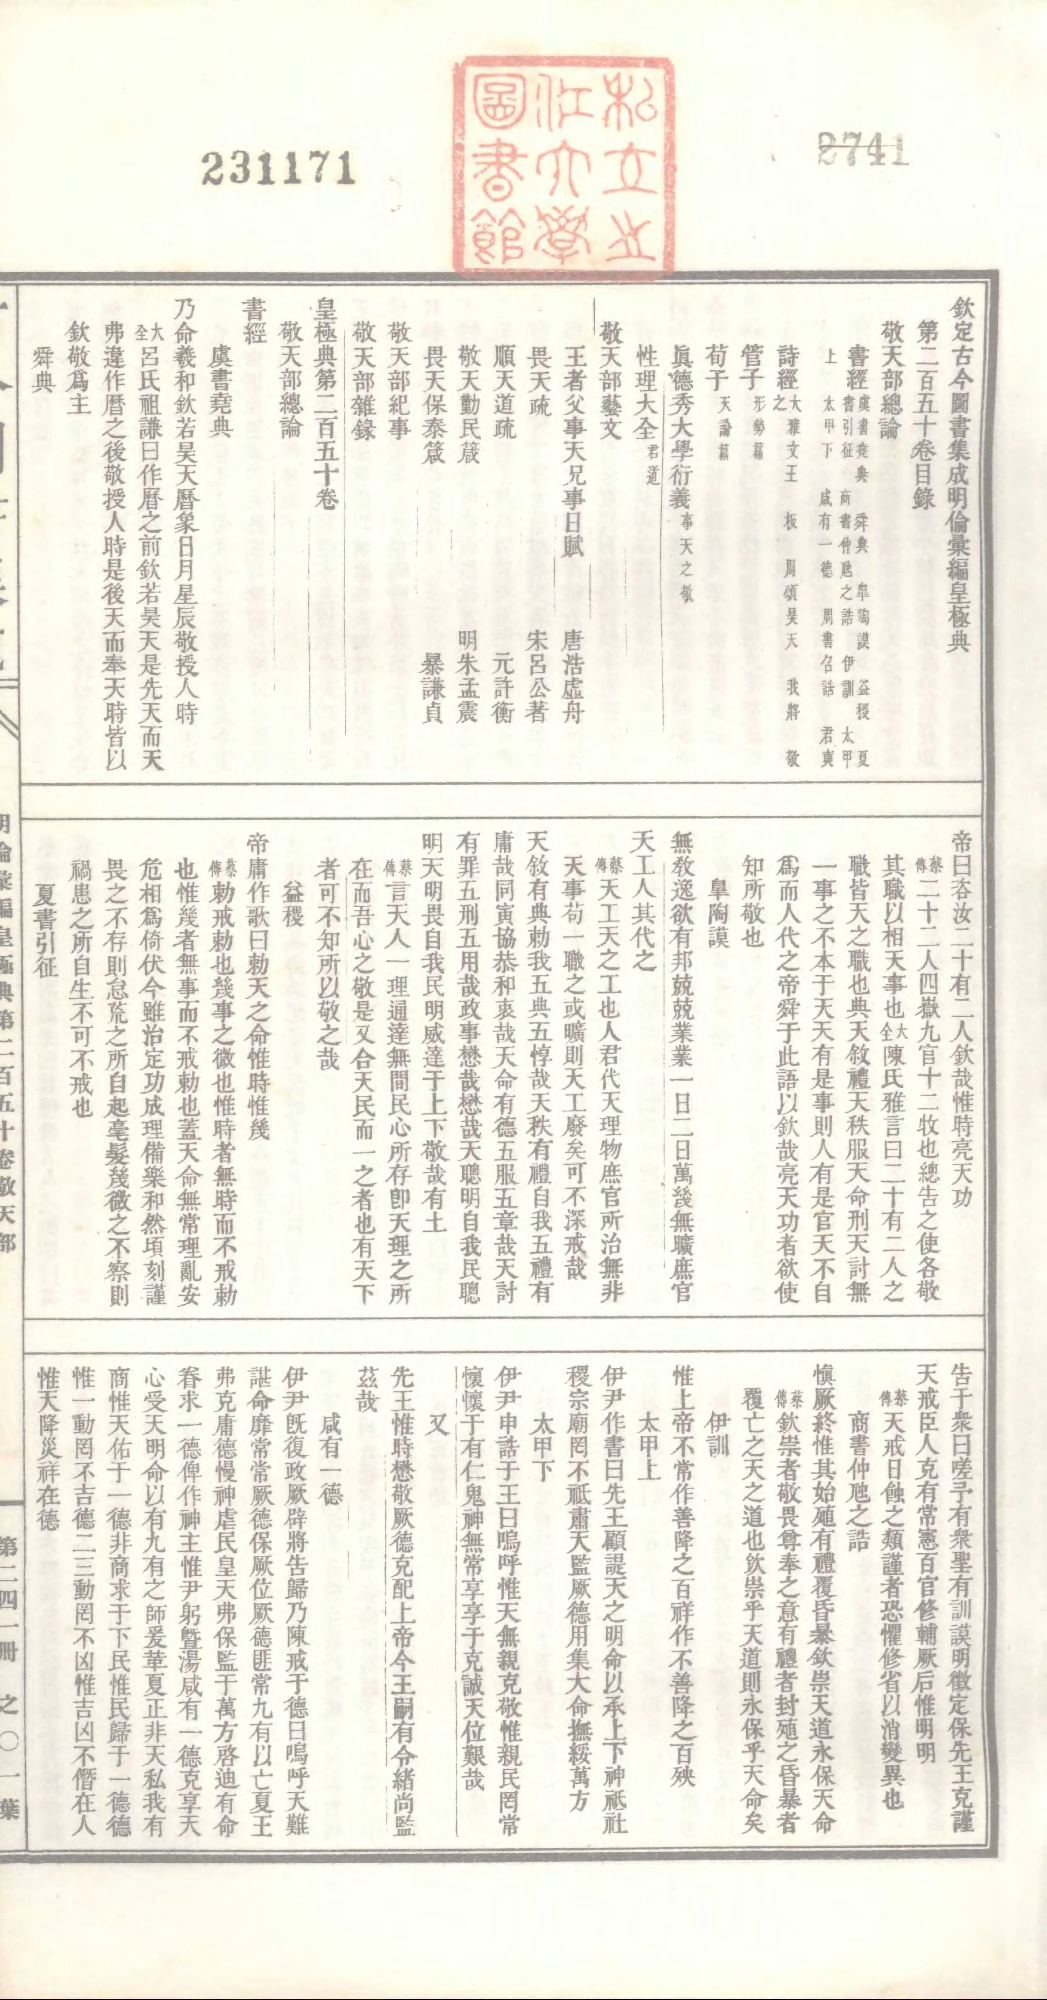 231171
2741
私立之
江大學
圖書館
欽定古今圖書集成明倫彙編皇極典
第二百五十卷目錄
敬天部總論
書經虞書堯典 舜典 皋陶謨 益稷 夏書引征 商書仲虺之誥 伊訓 太甲上 太甲下 咸有一德 周書召誥 君奭
詩經大雅文王 板 周頌昊天 我將 敬之
管子形勢篇
荀子天論篇
眞德秀大學衍義事天之敬
性理大全君道
敬天部藝文
王者父事天兄事日賦 唐浩虛舟
畏天疏 宋呂公著
順天道疏 元許衡
敬天勤民箴 明朱孟震
畏天保泰箴 暴謙貞
敬天部紀事
敬天部雜錄
皇極典第二百五十卷
敬天部總論
書經
虞書堯典
乃命羲和欽若昊天曆象日月星辰敬授人時
大全呂氏祖謙曰作曆之前欽若昊天是先天而天
弗違作曆之後敬授人時是後天而奉天時皆以
欽敬爲主
舜典
帝曰咨汝二十有二人欽哉惟時亮天功
蔡傳二十二人四嶽九官十二牧也總告之使各敬
其職以相天事也大全陳氏雅言曰二十有二人之
職皆天之職也典天敘禮天秩服天命刑天討無
一事之不本于天天有是事則人有是官天不自
爲而人代之帝舜于此語以欽哉亮天功者欲使
知所敬也
皐陶謨
無敎逸欲有邦兢兢業業一日二日萬幾無曠庶官
天工人其代之
蔡傳天工天之工也人君代天理物庶官所治無非
天事苟一職之或曠則天工廢矣可不深戒哉
天敘有典勅我五典五惇哉天秩有禮自我五禮有
庸哉同寅協恭和衷哉天命有德五服五章哉天討
有罪五刑五用哉政事懋哉懋哉天聰明自我民聰
明天明畏自我民明威達于上下敬哉有土
蔡傳言天人一理通達無間民心所存卽天理之所
在而吾心之敬是又合天民而一之者也有天下
者可不知所以敬之哉
益稷
帝庸作歌曰勅天之命惟時惟幾
蔡傳勅戒勅也幾事之微也惟時者無時而不戒勅
也惟幾者無事而不戒勅也蓋天命無常理亂安
危相爲倚伏今雖治定功成理備樂和然頃刻謹
畏之不存則怠荒之所自起毫髮幾微之不察則
禍患之所自生不可不戒也
夏書引征
告于衆曰嗟予有衆聖有訓謨明徵定保先王克謹
天戒臣人克有常憲百官修輔厥后惟明明
蔡傳天戒日蝕之類謹者恐懼修省以消變異也
商書仲虺之誥
愼厥終惟其始殖有禮覆昏暴欽崇天道永保天命
蔡傳欽崇者敬畏尊奉之意有禮者封殖之昏暴者
覆亡之天之道也欽崇乎天道則永保乎天命矣
伊訓
惟上帝不常作善降之百祥作不善降之百殃
太甲上
伊尹作書曰先王顧諟天之明命以承上下神祇社
稷宗廟罔不祗肅天監厥德用集大命撫綏萬方
太甲下
伊尹申誥于王曰嗚呼惟天無親克敬惟親民罔常
懷懷于有仁鬼神無常享享于克誠天位艱哉
又
先王惟時懋敬厥德克配上帝今王嗣有令緒尚監
茲哉
咸有一德
伊尹旣復政厥辟將告歸乃陳戒于德曰嗚呼天難
諶命靡常常厥德保厥位厥德匪常九有以亡夏王
弗克庸德慢神虐民皇天弗保監于萬方啓迪有命
眷求一德俾作神主惟尹躬曁湯咸有一德克享天
心受天明命以有九有之師爰革夏正非天私我有
商惟天佑于一德非商求于下民惟民歸于一德德
惟一動罔不吉德二三動罔不凶惟吉凶不僭在人
惟天降災祥在德
明倫彙編皇極典第二百五十卷敬天部
第二四一冊 之〇一葉